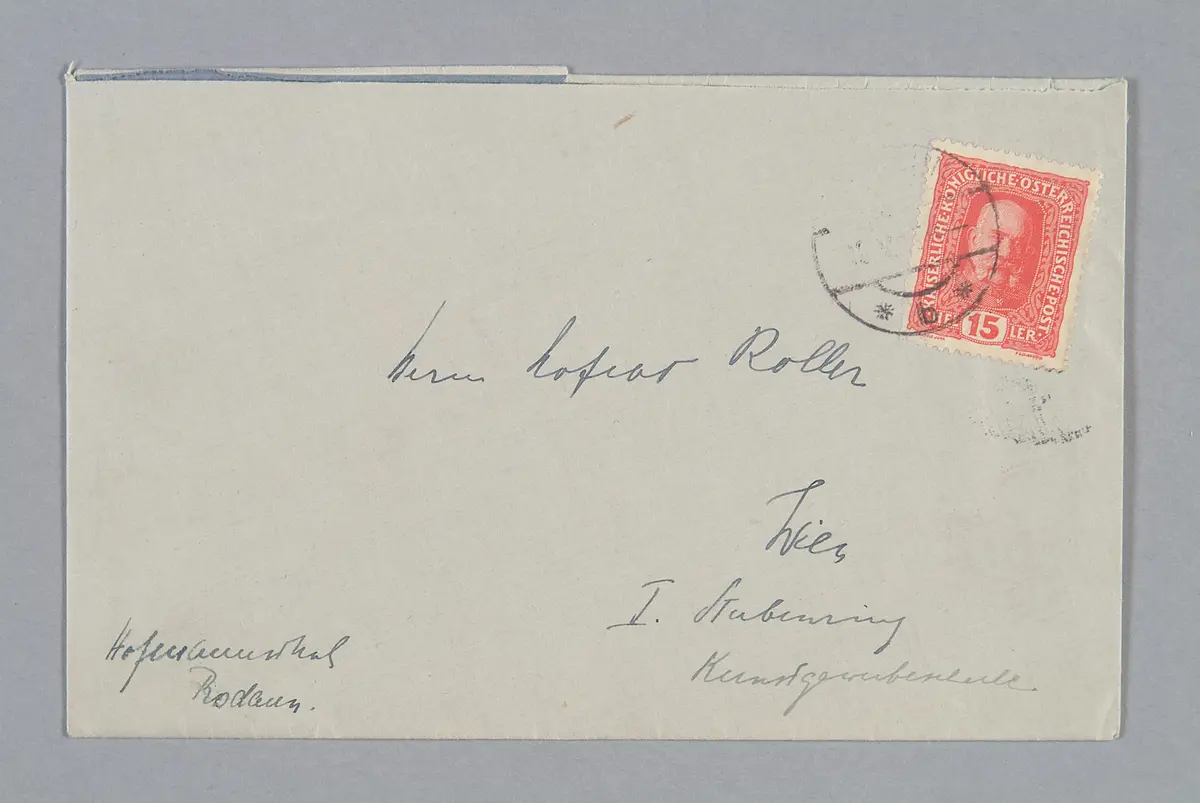 KAISERLICHE·KÖNIGLICHE·ÖSTERREICHISCHE·POST·
15
Herrn Hofrat Roller
Wien
I. Stubenring
Kunstgewerbeschule
Hofmannsthal
Rodaun.